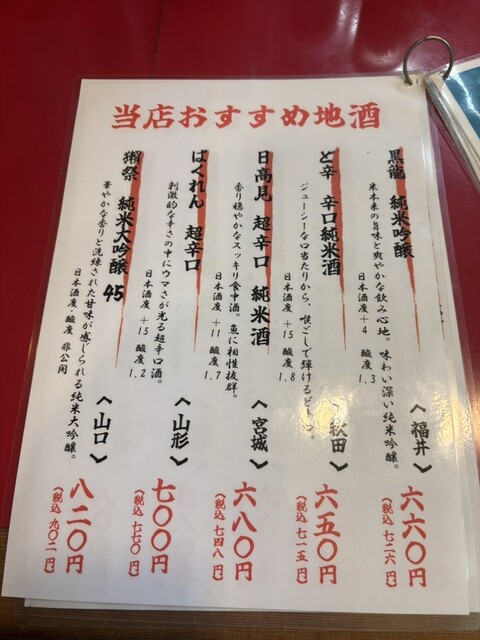 当店おすすめ地酒
黒龍 純米吟醸
米本来の旨味と爽やかな飲み心地。味わい深い純米吟醸。
日本酒度＋4 酸度1.3
〈福井〉
六六〇円
(税込 七二六円)
ど辛 辛口純米酒
ジューシーな口当たりから、喉ごしで弾けるドライ。
日本酒度＋15 酸度1.8
〈秋田〉
六五〇円
(税込 七一五円)
日高見 超辛口 純米酒
香り穏やかなスッキリ食中酒。魚に相性抜群。
日本酒度＋11 酸度1.7
〈宮城〉
六八〇円
(税込 七四八円)
ばくれん 超辛口
刺激的な辛さの中にウマさが光る超辛口酒。
日本酒度＋15 酸度1.2
〈山形〉
七〇〇円
(税込 七七〇円)
獺祭 純米大吟醸 45
華やかな香りと洗練された甘味が感じられる純米大吟醸。
日本酒度・酸度 非公開
〈山口〉
八二〇円
(税込 九〇二円)